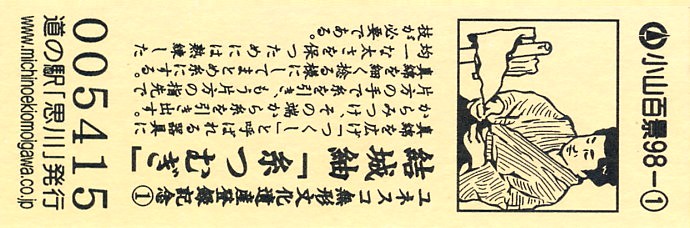 小山百景98－①
ユネスコ無形文化遺産登録記念①
結城紬「糸つむぎ」
真綿を広げ「つくし」と呼ばれる器具に
からみつけ、その端から糸を引き出す。
片方の手で糸を引き、もう片方の指先で
真綿を細く捻る様にしてまとめ糸にする。
均一な太さを保つためには熟練した
技が必要である。
005415
道の駅「思川」発行
www.michinoekiomoigawa.co.jp